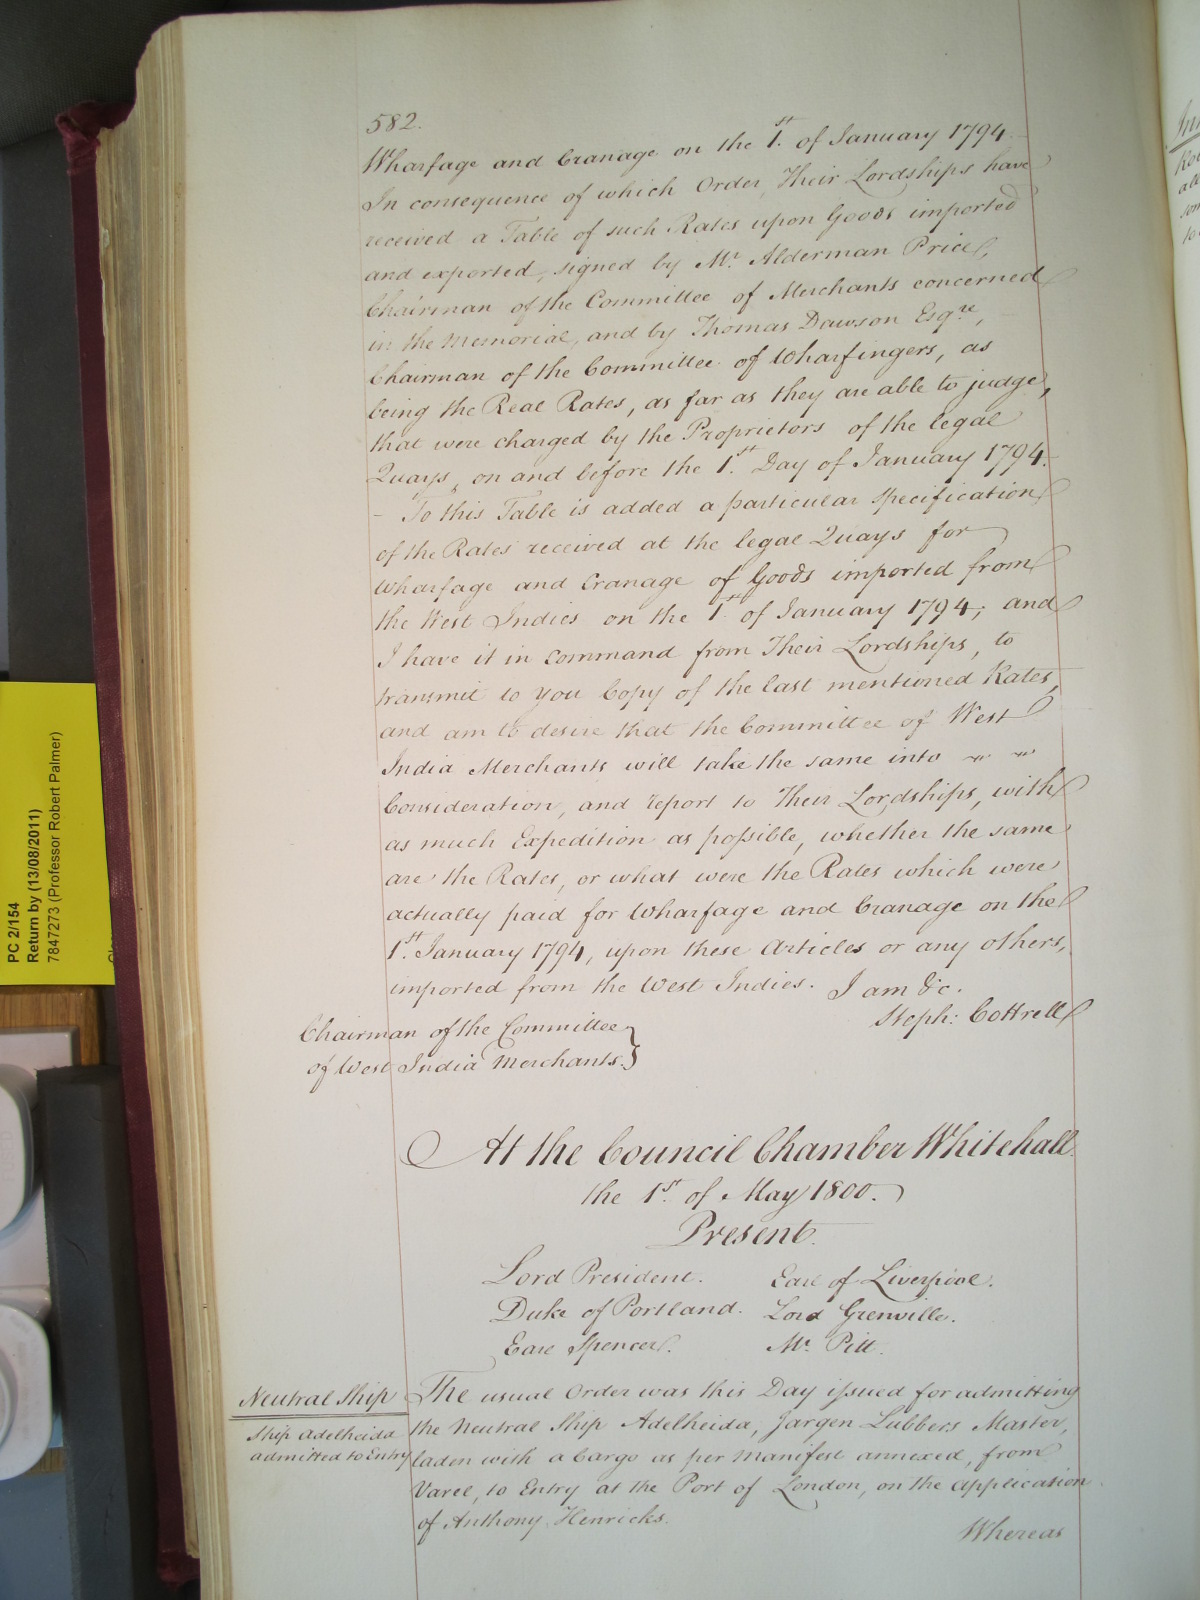 582.
Wharfage and Cranage on the 1st. of January 1794.
In consequence of which Order, Their Lordships have
received a Table of such Rates upon Goods imported
and exported, signed by Mr. Alderman Price,
Chairman of the Committee of Merchants concerned
in the Memorial, and by Thomas Dawson Esqre,
Chairman of the Committee of Wharfingers, as
being the Real Rates, as far as they are able to judge,
that were charged by the Proprietors of the legal
Quays, on and before the 1st. Day of January 1794.
- To this Table is added a particular Specification
of the Rates received at the legal Quays for
Wharfage and Cranage of Goods imported from
the West Indies on the 1st of January 1794; and
I have it in Command from Their Lordships, to
transmit to you Copy of the last mentioned Rates,
and am to desire that the Committee of West
India Merchants will take the same into
Consideration, and report to Their Lordships, with
as much Expedition as possible, whether the same
are the Rates, or what were the Rates which were
actually paid for Wharfage and Cranage on the
1st. January 1794, upon these Articles or any others,
imported from the West Indies. I am &c.
Steph: Cottrell
Chairman of the Committee
of West India Merchants. }
At the Council Chamber Whitehall
the 1st. of May 1800.
Present.
Lord President. Earl of Liverpool.
Duke of Portland. Lord Grenville.
Earl Spencer. Mr. Pitt.
Neutral Ship
Ship Adelheida
admitted to Entry
The usual Order was this Day issued for admitting
the Neutral Ship Adelheida, Jargen Lubbers Master,
laden with a Cargo as per Manifest annexed, from
Varel, to Entry at the Port of London, on the Application
of Anthony Henricks.
Whereas
PC 2/154
Return by (13/08/2011)
7847273 (Professor Robert Palmer)